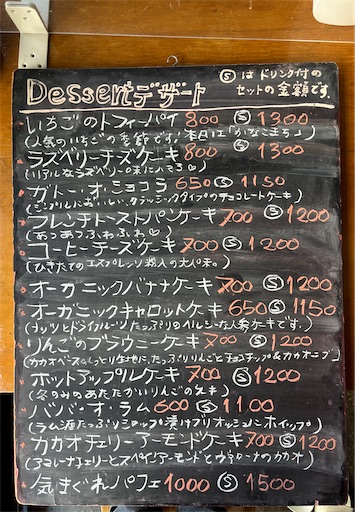 Dessert デザート
Ⓢ は ドリンク付の
セットの金額です。
いちごのトフィーパイ 800 Ⓢ 1300
(人気のいちごの季節です! 本日は「かなこまち」)
ラズベリーチーズケーキ 800 Ⓢ 1300
(リアルなラズベリーの味にハマる♡)
ガトー・オ・ショコラ 650 Ⓢ 1150
(シンプルにおいしい、クラッシックタイプのチョコレートケーキ)
フレンチトーストパンケーキ 700 Ⓢ 1200
(あつあつふわふわ♡)
コーヒーチーズケーキ 700 Ⓢ 1200
(ひきたてのエスプレッソ粉入の大人味。)
オーガニックバナナケーキ 700 Ⓢ 1200
オーガニックキャロットケーキ 650 Ⓢ 1150
(ナッツとドライフルーツたっぷりのヘルシーな人気ケーキです。)
りんごのブラウニーケーキ 700 Ⓢ 1200
(カカオベースのしっとり生地に、たっぷりりんごとチョコチップ&カカオニブ)
ホットアップルケーキ 700 Ⓢ 1200
(冬のみのあたたかいりんごの)
ババ・オ・ラム 600 Ⓢ 1100
(ラム酒たっぷりシロップ漬けブリオッシュンホイップ)
カカオチェリーアーモンドケーキ 700 Ⓢ 1200
(アマレーナチェリーとスペインアーモンドとのカカオ)
気まぐれパフェ 1000 Ⓢ 1500